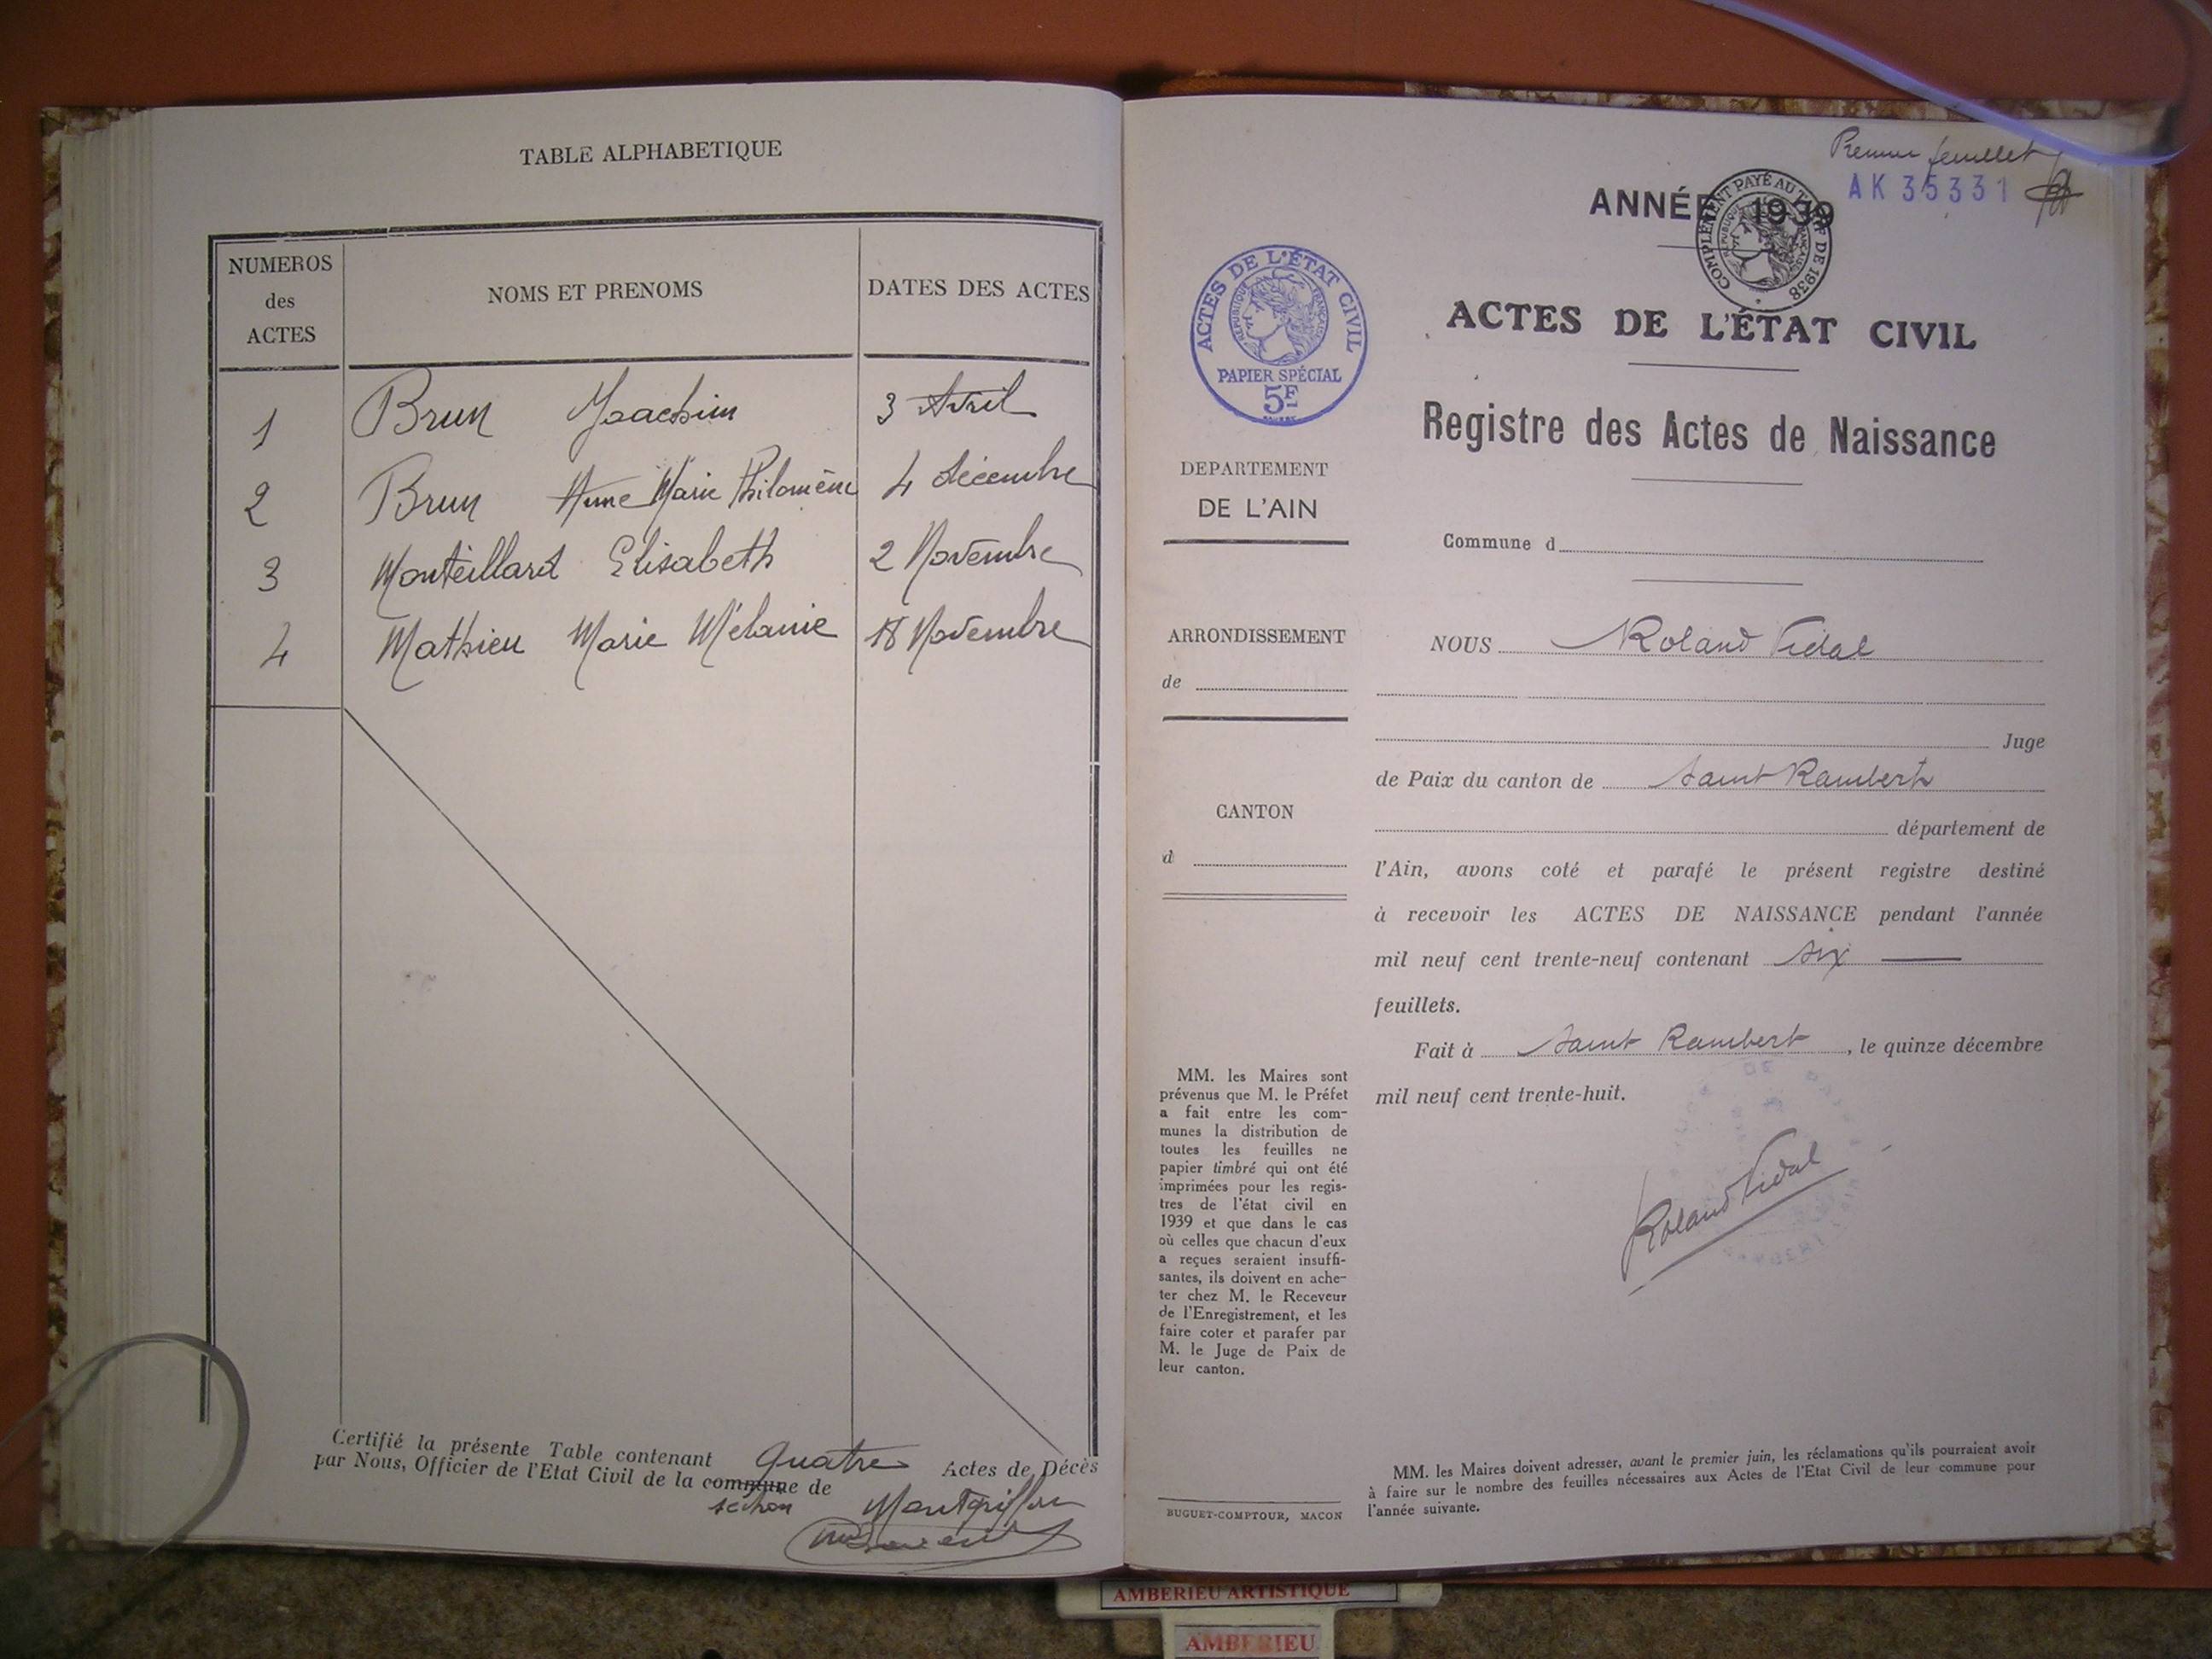 TABLE ALPHABETIQUE
NUMEROS des ACTES
NOMS ET PRENOMS
DATES DES ACTES
1 Brun Joachim 3 Avril
2 Brun Anne Marie Philomène 4 décembre
3 Monteillard Elisabeth 2 Novembre
4 Mathieu Marie Mélanie 18 Novembre
Certifié la présente Table contenant quatre Actes de Décès
par Nous, Officier de l'Etat Civil de la commune de
section Montgriffon
Premier feuillet
AK 35331
ANNÉE 1939
COMPLÉMENT PAYÉ AU TARIF DE 1938
RÉPUBLIQUE FRANÇAISE
ACTES DE L'ÉTAT CIVIL
RÉPUBLIQUE FRANÇAISE
PAPIER SPÉCIAL
5F
ACTES DE L'ÉTAT CIVIL
Registre des Actes de Naissance
DEPARTEMENT
DE L'AIN
Commune d
ARRONDISSEMENT
de
CANTON
d
NOUS Roland Vidal
Juge
de Paix du canton de Saint Rambert
département de
l'Ain, avons coté et parafé le présent registre destiné
à recevoir les ACTES DE NAISSANCE pendant l'année
mil neuf cent trente-neuf contenant six
feuillets.
Fait à Saint Rambert, le quinze décembre
mil neuf cent trente-huit.
Roland Vidal
MM. les Maires sont
prévenus que M. le Préfet
a fait entre les com-
munes la distribution de
toutes les feuilles ne
papier timbré qui ont été
imprimées pour les regis-
tres de l'état civil en
1939 et que dans le cas
où celles que chacun d'eux
a reçues seraient insuffi-
santes, ils doivent en ache-
ter chez M. le Receveur
de l'Enregistrement, et les
faire coter et parafer par
M. le Juge de Paix de
leur canton.
BUGUET-COMPTOUR, MACON
MM. les Maires doivent adresser, avant le premier juin, les réclamations qu'ils pourraient avoir
à faire sur le nombre des feuilles nécessaires aux Actes de l'Etat Civil de leur commune pour
l'année suivante.
AMBERIEU ARTISTIQUE
AMBERIEU